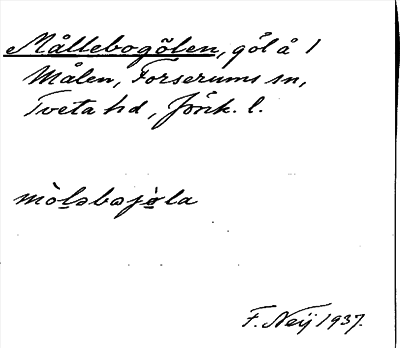 Mållebogölen, göl å 1
Målen, Forserums sn,
Tveta hd, Jönk. l.
mòləbəjø̀la
F. Neij 1937.